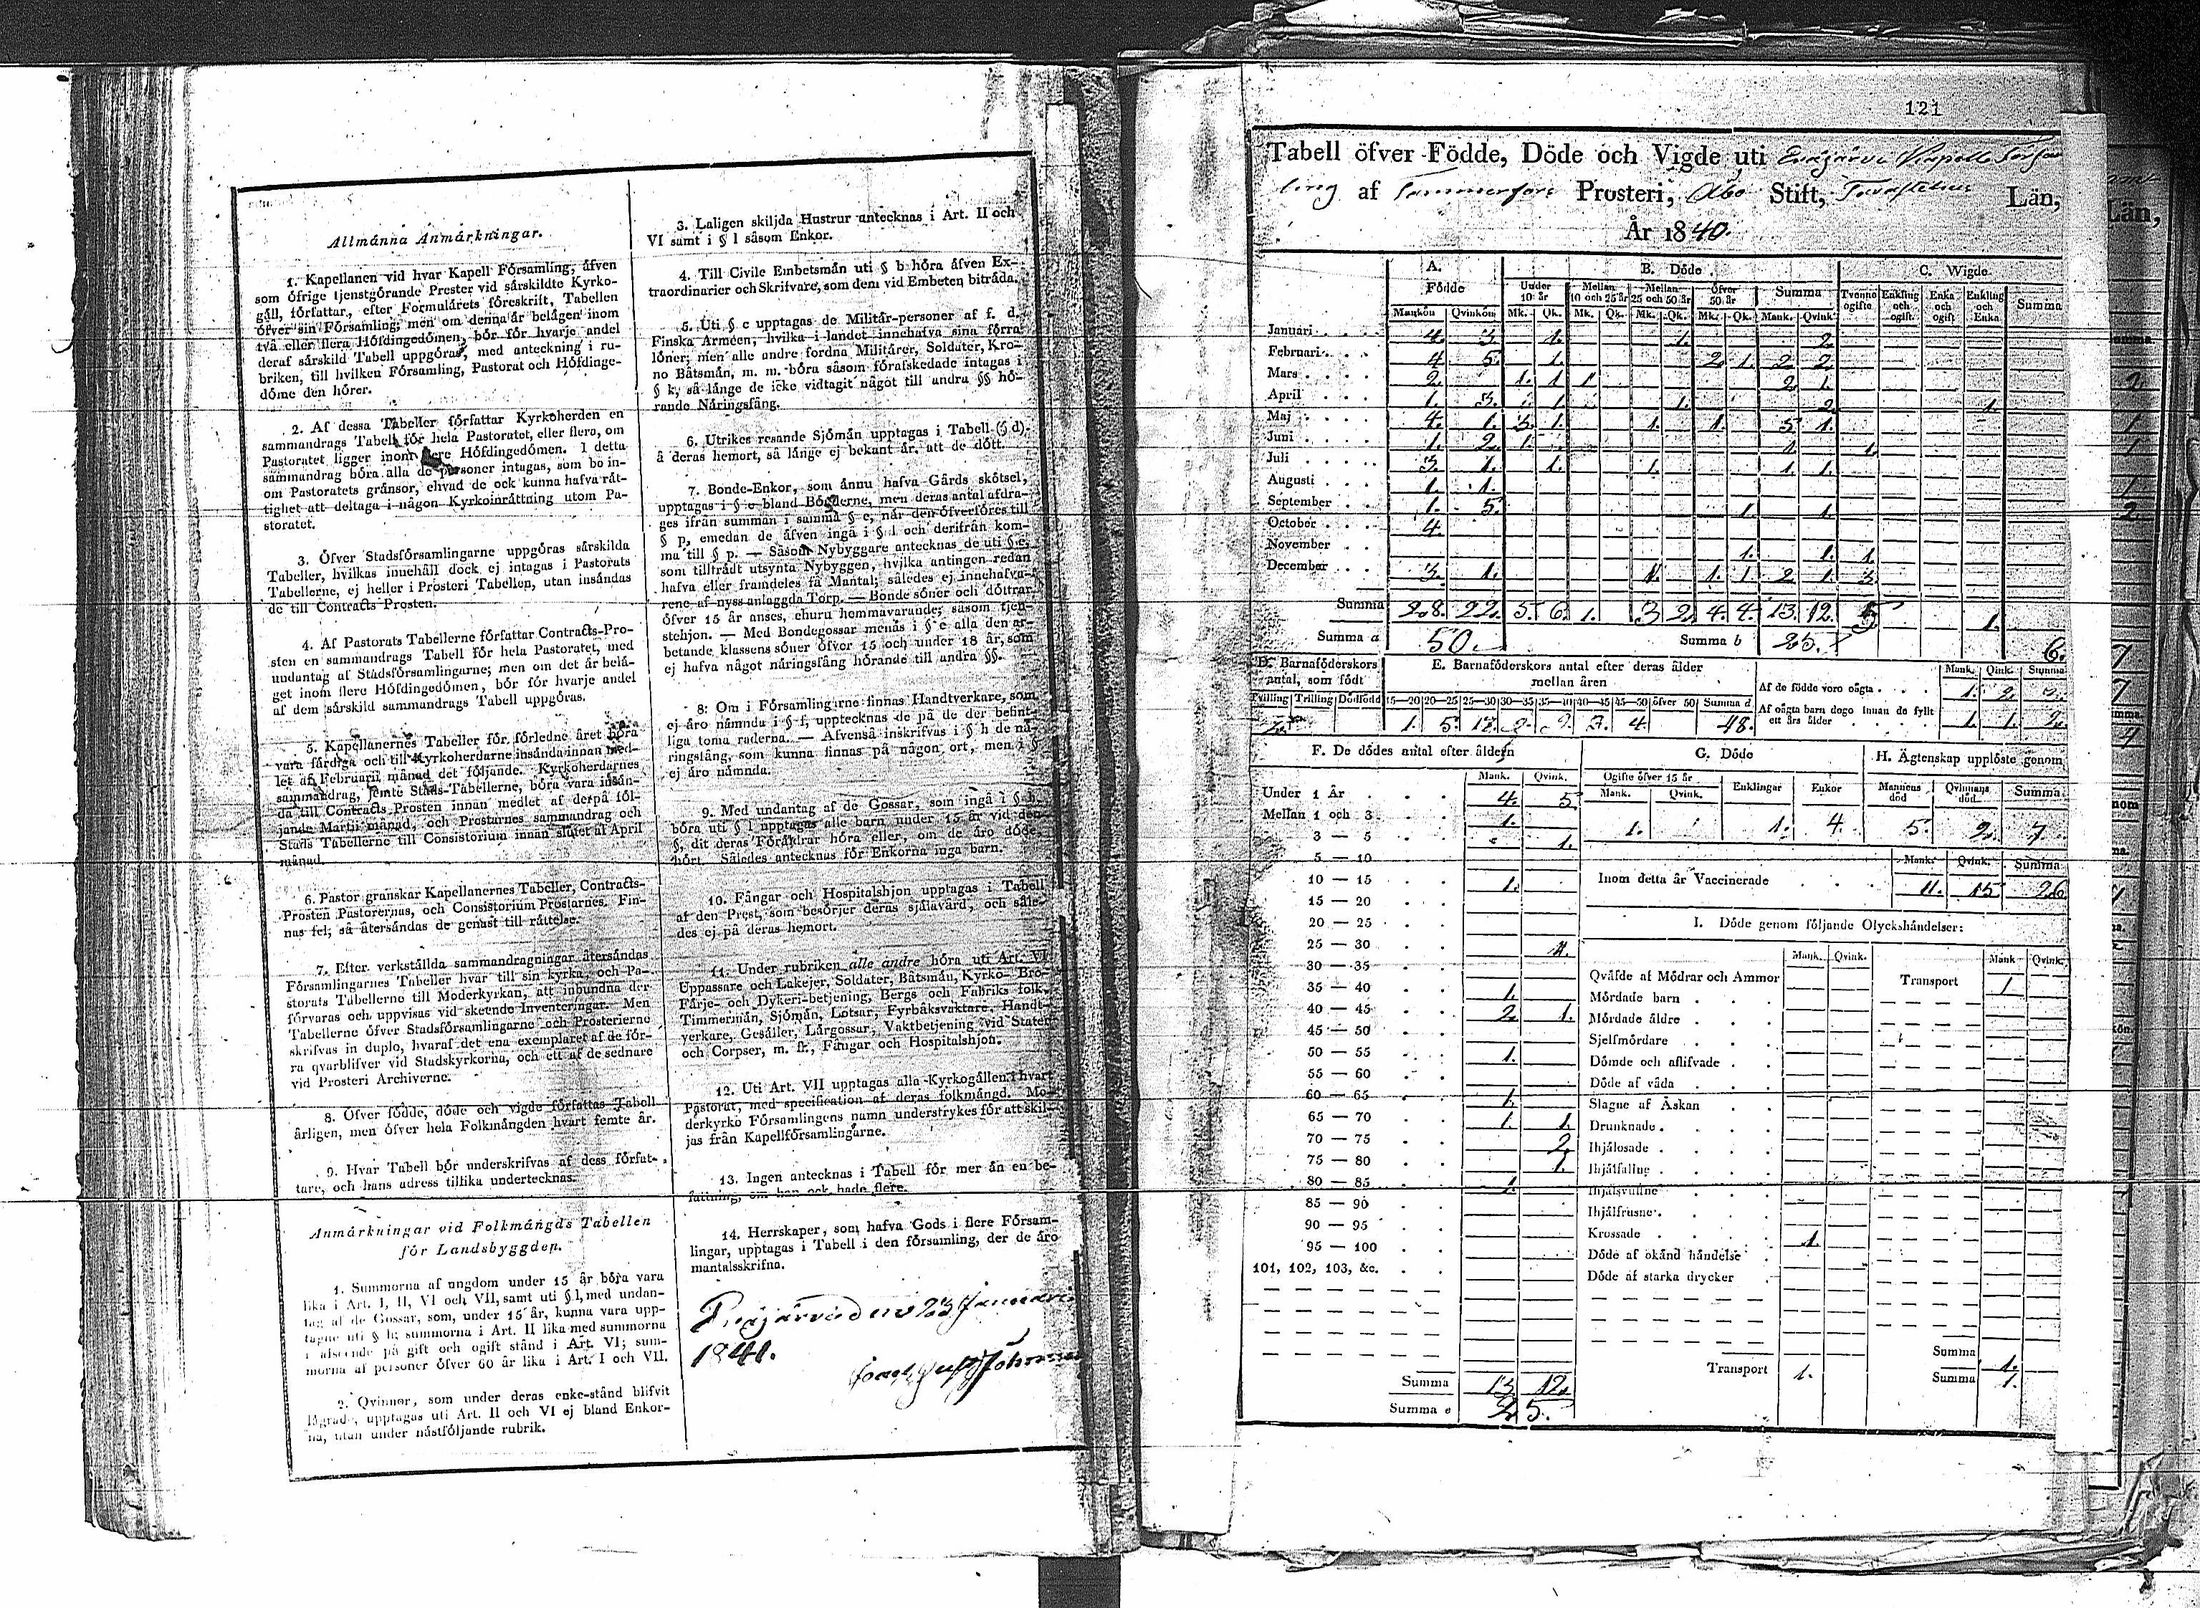 Allmánna Anmárkningar.
1. Kapellanen vid hvar Kapell Fórsamling, áfven
som ófrige tjenstgórande Prester vid sárskildte Kyrko-
gáll, fórfattar, efter Formulárets fóreskrift, Tabellen
ófver sin Fórsamling; men om denna år belågen inom
två eller flera Hófdingedómen, bór fór hvarje andel
deraf sárskild Tabell uppgóras, med anteckning i ru-
briken, till hvilken Fórsamling, Pastorat och Hófdinge-
dóme den hórer.
2. Af dessa Tabeller fórfattar Kyrkoherden en
sammandrags Tabell fór hela Pastoratet, eller flera, om
Pastoratet ligger inom flere Hófdingedómen. I detta
sammandrag bóra alla de personer intagas, som bo in-
om Pastoratets grånsor, ehvad de ock kunna hafva råt-
tighet att deltaga i någon Kyrkoinråttning utom Pa-
storatet.
3. Ófver Stadsfórsamlingarne uppgóras sárskilda
Tabeller, hvilkas innehåll dock ej intagas i Pastorats
Tabellerne, ej heller i Prosteri Tabellen, utan insåndas
de till Contracts Prosten.
4. Af Pastorats Tabellerne fórfattar Contracts-Pro-
sten en sammandrags Tabell fór hela Pastoratet, med
undantag af Stadsfórsamlingarne; men om det år belå-
get inom flere Hófdingedómen, bór fór hvarje andel
af dem sárskild sammandrags Tabell uppgóras.
5. Kapellanernes Tabeller fór fórledne året bóra
vara fårdiga och till Kyrkoherdarne insånda innan med-
let af Februarii månad det fóljande. Kyrkoherdarnes
sammandrag, jemte Stads-Tabellerne, bóra vara insån-
da till Contracts Prosten innan medlet af derpå fól-
jande Martii månad, och Prostarnes sammandrag och
Stads Tabellerne till Consistorium innan slutet af April
månad.
6. Pastor granskar Kapellanernes Tabeller, Contracts-
Prosten Pastorernas, och Consistorium Prostarnes. Fin-
nas fel, så återsåndas de genast till råttelse.
7. Efter verkstållda sammandragningar återsåndas
Fórsamlingarnes Tabeller hvar till sin kyrka, och Pa-
storats Tabellerne till Moderkyrkan, att inbundna der
fórvaras och uppvisas vid skeende Inventeringar. Men
Tabellerne ófver Stadsfórsamlingarne och Prosterierne
skrifvas in duplo, hvaraf det ena exemplaret af de fór-
ra qvarblifver vid Stadskyrkorna, och ett af de sednare
vid Prosteri Archiverne.
8. Ófver fódde, dóde och vigde fórfattas Tabell
årligen, men ófver hela Folkmångden hvart femte år.
9. Hvar Tabell bór underskrifvas af dess fórfat-
tare, och hans adress tillika undertecknas.
Anmárkningar vid Folkmángds Tabellen
fór Landsbyggden.
1. Summorna af ungdom under 15 år bóra vara
lika i Art. I, II, VI och VII, samt uti § l, med undan-
tag af de Gossar, som, under 15 år, kunna vara upp-
tagne uti § h; summorna i Art. II lika med summorna
i afseende på gift och ogift stånd i Art. VI; sum-
morna af personer ófver 60 år lika i Art. I och VII.
2. Qvinnor, som under deras enke-stånd blifvit
lågrade, upptagas uti Art. II och VI ej bland Enkor-
na, utan under nåstfóljande rubrik.
3. Laligen skiljda Hustrur antecknas i Art. II och
VI samt i § l såsom Enkor.
4. Till Civile Embetsmån uti § b hóra åfven Ex-
traordinarier och Skrifvare, som dem vid Embeten bitråda.
5. Uti § c upptagas de Militår-personer af f. d.
Finska Armeen, hvilka i landet innehafva sina fórra
lóner; men alle andre fordna Militårer, Soldater, Kro-
no Båtsmån, m. m. bóra såsom fórafskedade intagas i
§ k, så långe de icke vidtagit något till andra §§ hó-
rande Nåringsfång.
6. Utrikes resande Sjómån upptagas i Tabell (§ d)
å deras hemort, så långe ej bekant år, att de dótt.
7. Bonde-Enkor, som ånnu hafva Gårds skótsel,
upptagas i § e bland Bónderne, men deras antal afdra-
ges ifrån summan i samma § e, når den ófverfóres till
§ p, emedan de åfven ingå i § l och derifrån kom-
ma till § p. — Såsom Nybyggare antecknas de uti § e,
som tilltrådt utsynta Nybyggen, hvilka antingen redan
hafva eller framdeles få Mantal; således ej innehafva-
rene af nyss anlaggda Torp. — Bonde sóner och dóttrar
ófver 15 år anses, ehuru hemmavarande, såsom tjen-
stehjon. — Med Bondegossar menås i § e alla den ar-
betande klassens sóner ófver 15 och under 18 år, som
ej hafva något nåringsfång hórande till andra §§.
8. Om i Fórsamlingarne finnas Handtverkare, som
ej åro nåmnda i § f, upptecknas de på de der befint-
liga toma raderna. — Åfvenså inskrifvas i § h de nå-
ringsfång, som kunna finnas på någon ort, men i §
ej åro nåmnda.
9. Med undantag af de Gossar, som ingå i § h,
bóra uti § l upptagas alle barn under 15 år vid den
§, dit deras Fóråldrar hóra eller, om de åro dóde,
hórt. Således antecknas fór Enkorna inga barn.
10. Fångar och Hospitalshjon upptagas i Tabell
af den Prest, som besórjer deras sjålavård, och såle-
des ej på deras hemort.
11. Under rubriken alle andre hóra uti Art. VI
Uppassare och Lakejer, Soldater, Båtsmån, Kyrko- Bro-
Fårje- och Dykeri-betjening, Bergs och Fabriks folk,
Timmermån, Sjómån, Lotsar, Fyrbåksvaktare, Handt-
verkare, Gesåller, Lårgossar, Vaktbetjening vid Stater
och Corpser, m. fl., Fångar och Hospitalshjon.
12. Uti Art. VII upptagas alla Kyrkogållen i hvart
Pastorat, med specification af deras folkmångd. Mo-
derkyrko Fórsamlingens namn understrykes fór att skil-
jas från Kapellfórsamlingarne.
13. Ingen antecknas i Tabell fór mer ån en be-
fattning, om han ock hade flere.
14. Herrskaper, som hafva Gods i flere Fórsam-
lingar, upptagas i Tabell i den fórsamling, der de åro
mantalsskrifna.
den 23 Januari
1841.
121
Tabell öfver Födde, Döde och Vigde, uti Kapells Försam
ling af Tammerfors Prosteri, Åbo Stift, Tavastehus Län,
År 1840.
A. Födde B. Döde. C. Wigde
Under 10 år Mellan 10 och 25 år Mellan 25 och 50 år Öfver 50 år Summa Tvenne ogifte Enkling och ogift. Enka och ogift Enkling och Enka Summa
Mankön Qvinkön Mk. Qk. Mk. Qk. Mk. Qk. Mk. Qk. Mank. Qvink.
Januari 4. 3. 1. 1. 2.
Februari 4 5. 1. 2. 1. 2. 2.
Mars 2. 1. 1 1. 2 1.
April 1. 3. 1. 1. 2. 1.
Maj 4. 1. 3. 1. 1. 1. 5. 1.
Juni 1. 2. 1. 1. 1.
Juli 3. 1. 1. 1. 1. 1.
Augusti 1. 1.
September 1. 5. 1. 1.
October 4.
November 1. 1. 1.
December 3. 1. 1. 1. 1. 2. 1. 3.
Summa 28. 22. 5. 6. 1. 3 2. 4. 4. 13. 12. 5 1.
Summa a 50. Summa b 25. 6.
D. Barnaföderskors antal, som födt
Tvilling Trilling Dödfödd
2.
E. Barnaföderskors antal efter deras ålder
mellan åren
15—20 20—25 25—30 30—35 35—40 40—45 45—50 öfver 50 Summa d
1. 5. 4. 48.
Mank. Qink. Summa
Af de födde voro oägta 1. 2. 3.
Af oägta barn dogo innan de fyllt
ett års ålder 1. 1. 2.
F. De dödes antal efter åldern
Mank. Qvink.
Under 1 År 4. 5
Mellan 1 och 3 1.
3 — 5 1.
5 — 10
10 — 15 1.
15 — 20
20 — 25
25 — 30 1.
30 — 35
35 — 40 1.
40 — 45 2 1.
45 — 50
50 — 55 1.
55 — 60
60 — 65 1.
65 — 70 1 1.
70 — 75 2.
75 — 80 1.
80 — 85 1.
85 — 90
90 — 95
95 — 100
101, 102, 103, &c.
Summa 13 12.
Summa e 25.
G. Döde
Ogifte öfver 15 år Enklingar Enkor
Mank. Qvink.
1. 1. 4.
H. Ägtenskap upplöste genom
Mannens död Qvinnans död Summa
5. 2. 7.
Mank. Qvink. Summa
Inom detta år Vaccinerade 11. 15 26
I. Döde genom följande Olyckshändelser:
Mank. Qvink. Mank Qvink.
Qväfde af Mödrar och Ammor Transport 1
Mördade barn
Mördade äldre
Sjelfmördare
Dömde och aflifvade
Döde af våda
Slagne af Åskan
Drunknade
Ihjälosade
Ihjälfallne
Ihjälsvultne
Ihjälfrusne
Krossade 1.
Döde af okänd händelse
Döde af starka drycker
Summa 1.
Transport 1. Summa 1.
Län,